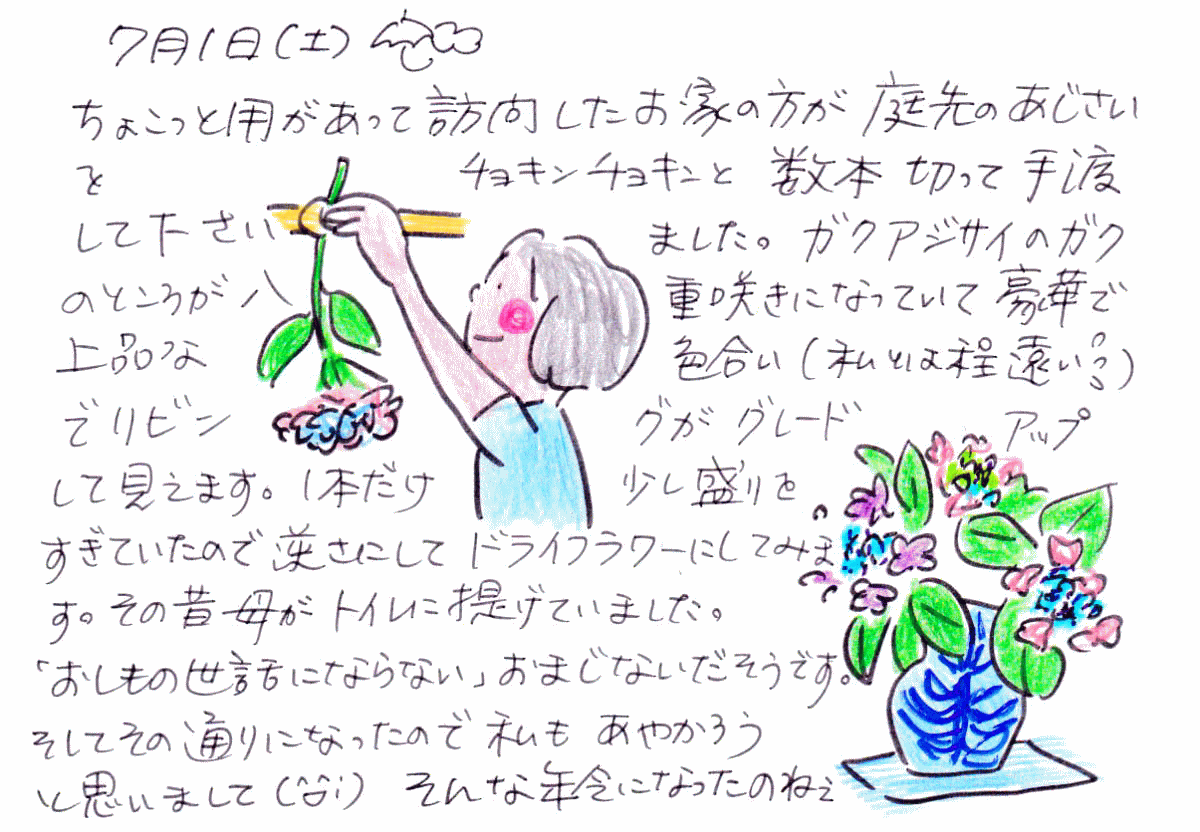 7月1日(土)
ちょこっと用があって訪問したお家の方が庭先のあじさい
を チョキンチョキンと 数本 切って 手渡
して下さい ました。ガクアジサイのガク
のところが八 重咲きになっていて豪華で
上品な 色合い(私とは程遠い??)
でリビン グが グレード アップ
して見えます。1本だけ 少し盛りを
すぎていたので逆さにしてドライフラワーにしてみま
す。その昔 母がトイレに提げていました。
「おしもの世話にならない」おまじないだそうです。
そしてその通りになったので私も あやかろう
と思いまして(^^;) そんな年令になったのねぇ